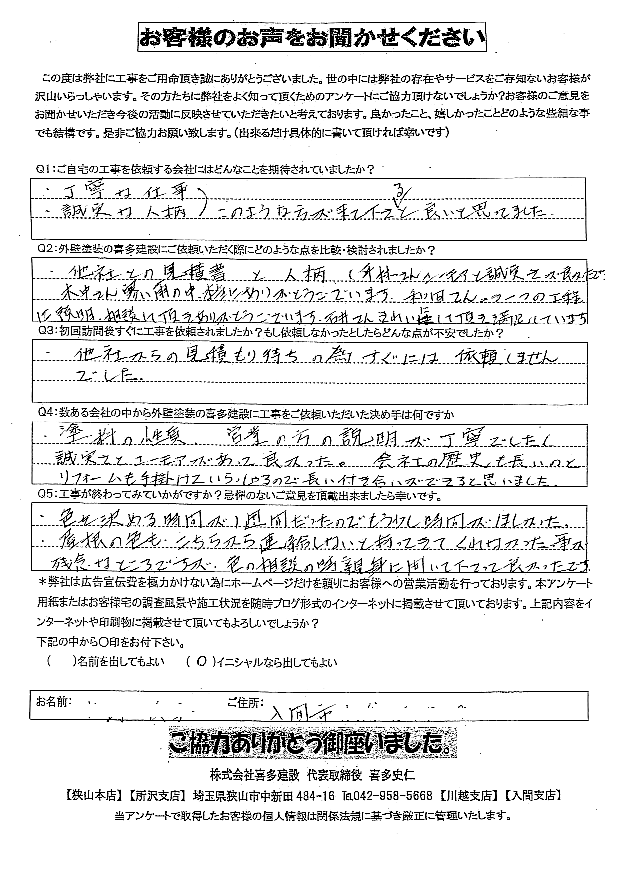 お客様のお声をお聞かせください
この度は弊社に工事をご用命頂き誠にありがとうございました。世の中には弊社の存在やサービスをご存知ないお客様が
沢山いらっしゃいます。その方たちに弊社をよく知って頂くためのアンケートにご協力頂けないでしょうか?お客様のご意見を
お聞かせいただき今後の活動に反映させていただきたいと考えております。良かったこと、嬉しかったことどのような些細な事
でも結構です。是非ご協力お願い致します。(出来るだけ具体的に書いて頂ければ幸いです)
Q1:ご自宅の工事を依頼する会社にはどんなことを期待されていましたか?
・丁寧な仕事
・誠実な人柄 このような方が来て下さると良いと思ってました
Q2:外壁塗装の喜多建設にご依頼いただく際にどのような点を比較・検討されましたか?
・他社との見積書と人柄
暑い雨の中 ありがとうございます
説明、相談して頂きありがとうございます 満足しています
Q3:初回訪問後すぐに工事を依頼されましたか?もし依頼しなかったとしたらどんな点が不安でしたか?
・他社からの見積もり待ちの為すぐには依頼しません
でした。
Q4:数ある会社の中から外壁塗装の喜多建設に工事をご依頼いただいた決め手は何ですか
・塗料の性質 営業の方の説明が丁寧でしたし
誠実さとユーモアがあって良かった。会社の歴史も長いのと
リフォームも手掛けていらっしゃるので長い付き合いができると思いました
Q5:工事が終わってみていかがですか?忌憚のないご意見を頂戴出来ましたら幸いです。
・色を決める時間が1週間だったのでもう少し時間がほしかった。
・屋根の色もこちらから連絡しないと持ってきてくれなかった事が
残念なところですが、色の相談の時親身に聞いて下さって良かったです
*弊社は広告宣伝費を極力かけない為にホームページだけを頼りにお客様への営業活動を行っております。本アンケート
用紙またはお客様宅の調査風景や施工状況を随時ブログ形式のインターネットに掲載させて頂いております。上記内容をイ
ンターネットや印刷物に掲載させて頂いてもよろしいでしょうか?
下記の中から〇印をお付下さい。
( )名前を出してもよい (〇)イニシャルなら出してもよい
お名前: ご住所: 入間市
ご協力ありがとう御座いました。
株式会社喜多建設 代表取締役 喜多史仁
【狭山本店】【所沢支店】埼玉県狭山市中新田484-16 ℡042-958-5668【川越支店】【入間支店】
当アンケートで取得したお客様の個人情報は関係法規に基づき厳正に管理いたします。